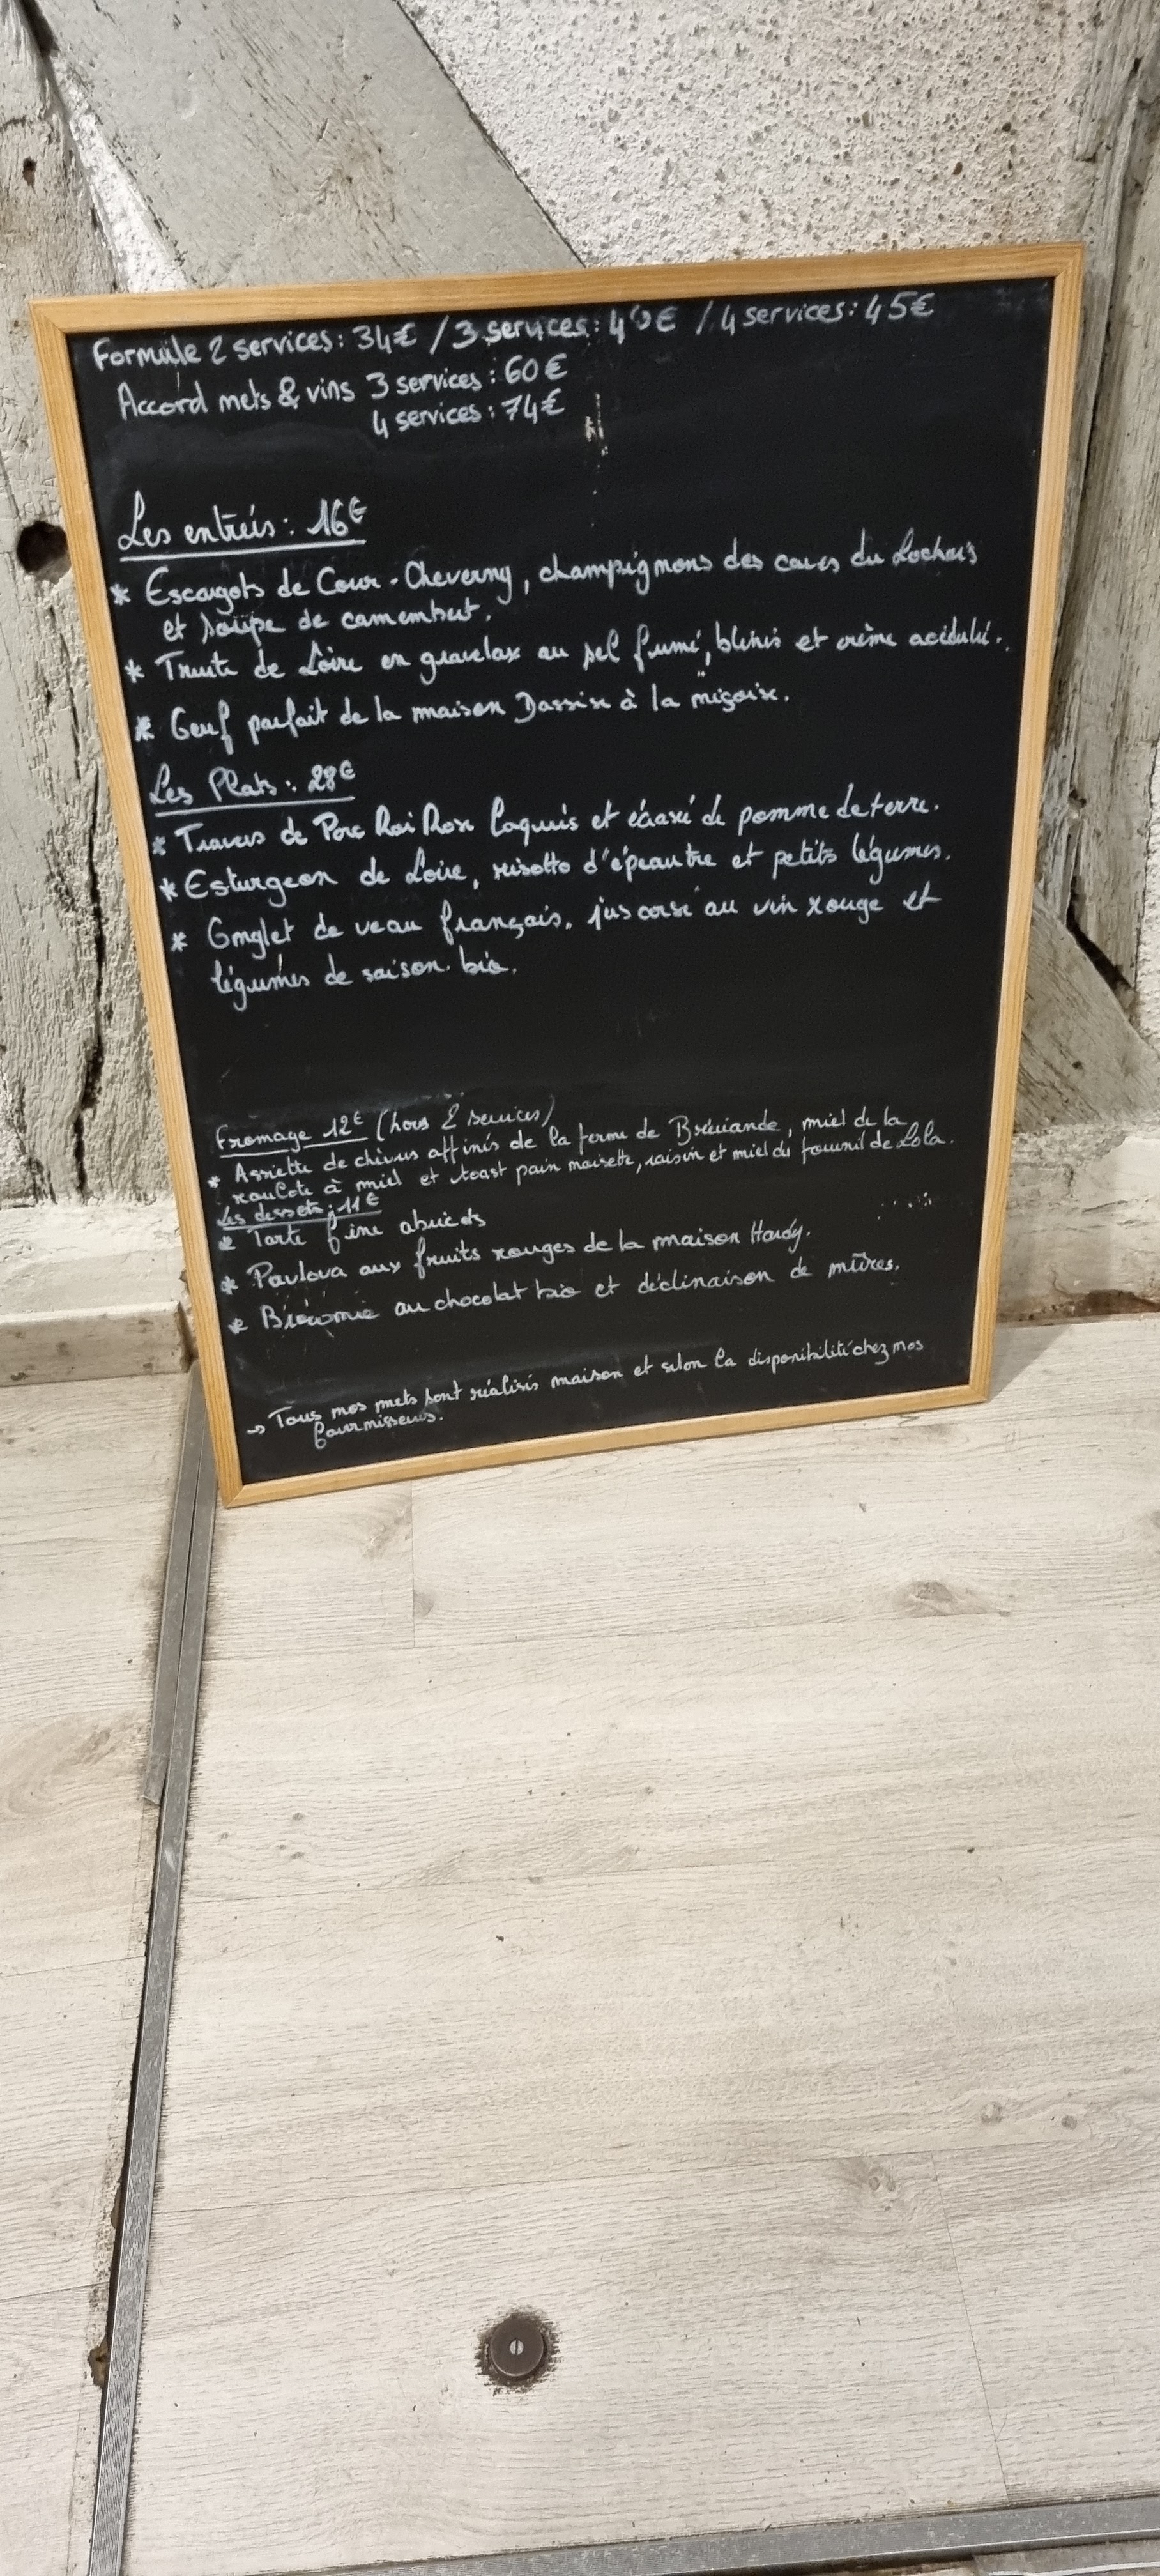 Formule 2 services: 34€ / 3 services: 40€ / 4 services: 45€
Accord mets & vins 3 services: 60€
4 services: 74€
Les entrées: 16€
* Escargots de Cour-Cheverny, champignons des caves du Lochois
et soupe de camembert.
* Truite de Loire en gravelax au sel fumé, blinis et crème acidulé.
* Oeuf parfait de la maison à la niçoise.
Les Plats: 28€
* Travers de Porc Roi Rose Laqués et écrasé de pomme de terre.
* Esturgeon de Loire, risotto d'épeautre et petits légumes.
* Onglet de veau français, jus corsé au vin rouge et
légumes de saison bio.
Fromage 12€ (hors 2 services)
* Assiette de chèvres affinés de la ferme de Bréviande, miel de la
à miel et toast pain noisette, raisin et miel du fournil de Lola.
Les dessets: 11€
* Tarte fine abricots
* Pavlova aux fruits rouges de la maison Hardy.
* au chocolat bio et déclinaison de mûres.
→ Tous mos mets sont réalisés maison et selon la disponibilité chez mos
fournisseurs.